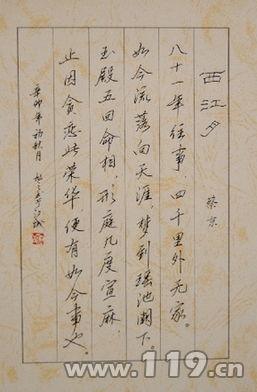 西江月
蔡京
八十一年往事，四千里外无家。
如今流落向天涯，梦到瑶池阙下。
玉殿五回命相，彤庭几度宣麻，
止因贪恋此荣华，便有如今事也。
辛卯年初秋月
www.119.cn